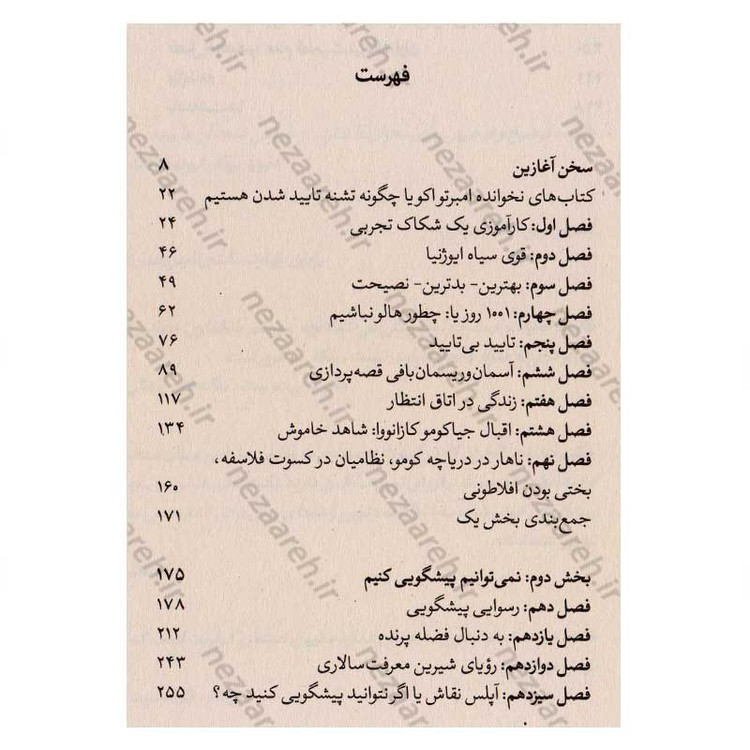 فهرست
سخن آغازین ۸
کتاب‌های نخوانده امبرتو اکو یا چگونه تشنه تایید شدن هستیم ۲۲
فصل اول: کارآموزی یک شکاک تجربی ۲۴
فصل دوم: قوی سیاه ایوژنیا ۴۶
فصل سوم: بهترین- بدترین- نصیحت ۴۹
فصل چهارم: ۱۰۰۱ روز یا: چطور هالو نباشیم ۶۲
فصل پنجم: تایید بی‌تایید ۷۶
فصل ششم: آسمان‌وریسمان‌بافی قصه‌پردازی ۸۹
فصل هفتم: زندگی در اتاق انتظار ۱۱۷
فصل هشتم: اقبال جیاکومو کازانووا: شاهد خاموش ۱۳۴
فصل نهم: ناهار در دریاچه کومو، نظامیان در کسوت فلاسفه،
بختی بودن افلاطونی ۱۶۰
جمع‌بندی بخش یک ۱۷۱
بخش دوم: نمی‌توانیم پیشگویی کنیم ۱۷۵
فصل دهم: رسوایی پیشگویی ۱۷۸
فصل یازدهم: به دنبال فضله پرنده ۲۱۲
فصل دوازدهم: رؤیای شیرین معرفت‌سالاری ۲۴۳
فصل سیزدهم: آپلس نقاش یا اگر نتوانید پیشگویی کنید چه؟ ۲۵۵
nezaareh.ir